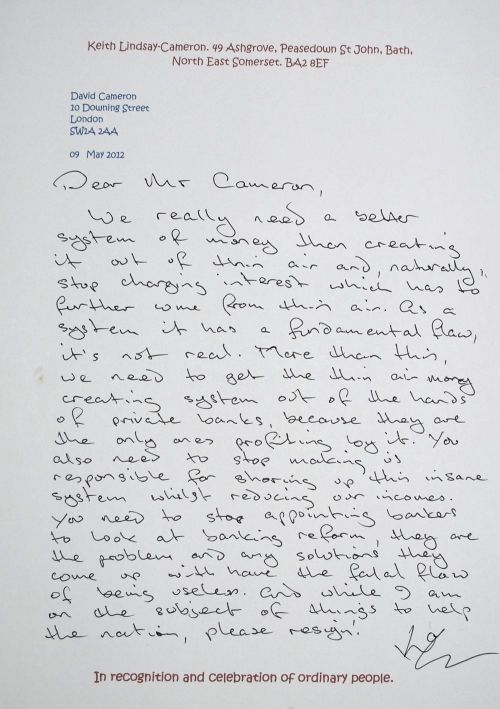 Keith Lindsay-Cameron. 49 Ashgrove, Peasedown St John, Bath,
North East Somerset. BA2 8EF
David Cameron
10 Downing Street
London
SW1A 2AA
09 May 2012
Dear Mr Cameron,
We really need a better
system of money than creating
it out of thin air and, naturally,
stop charging interest which has to
further come from thin air. As a
system it has a fundamental flaw,
it's not real. More than this,
we need to get the thin air money
creating system out of the hands
of private banks, because they are
the only ones profiting by it. You
also need to stop making us
responsible for shoring up this insane
system whilst reducing our incomes.
You need to stop appointing bankers
to look at banking reform, they are
the problem and any solutions they
come up with have the fatal flaw
of being useless. And while I am
on the subject of things to help
the nation, please resign!
In recognition and celebration of ordinary people.